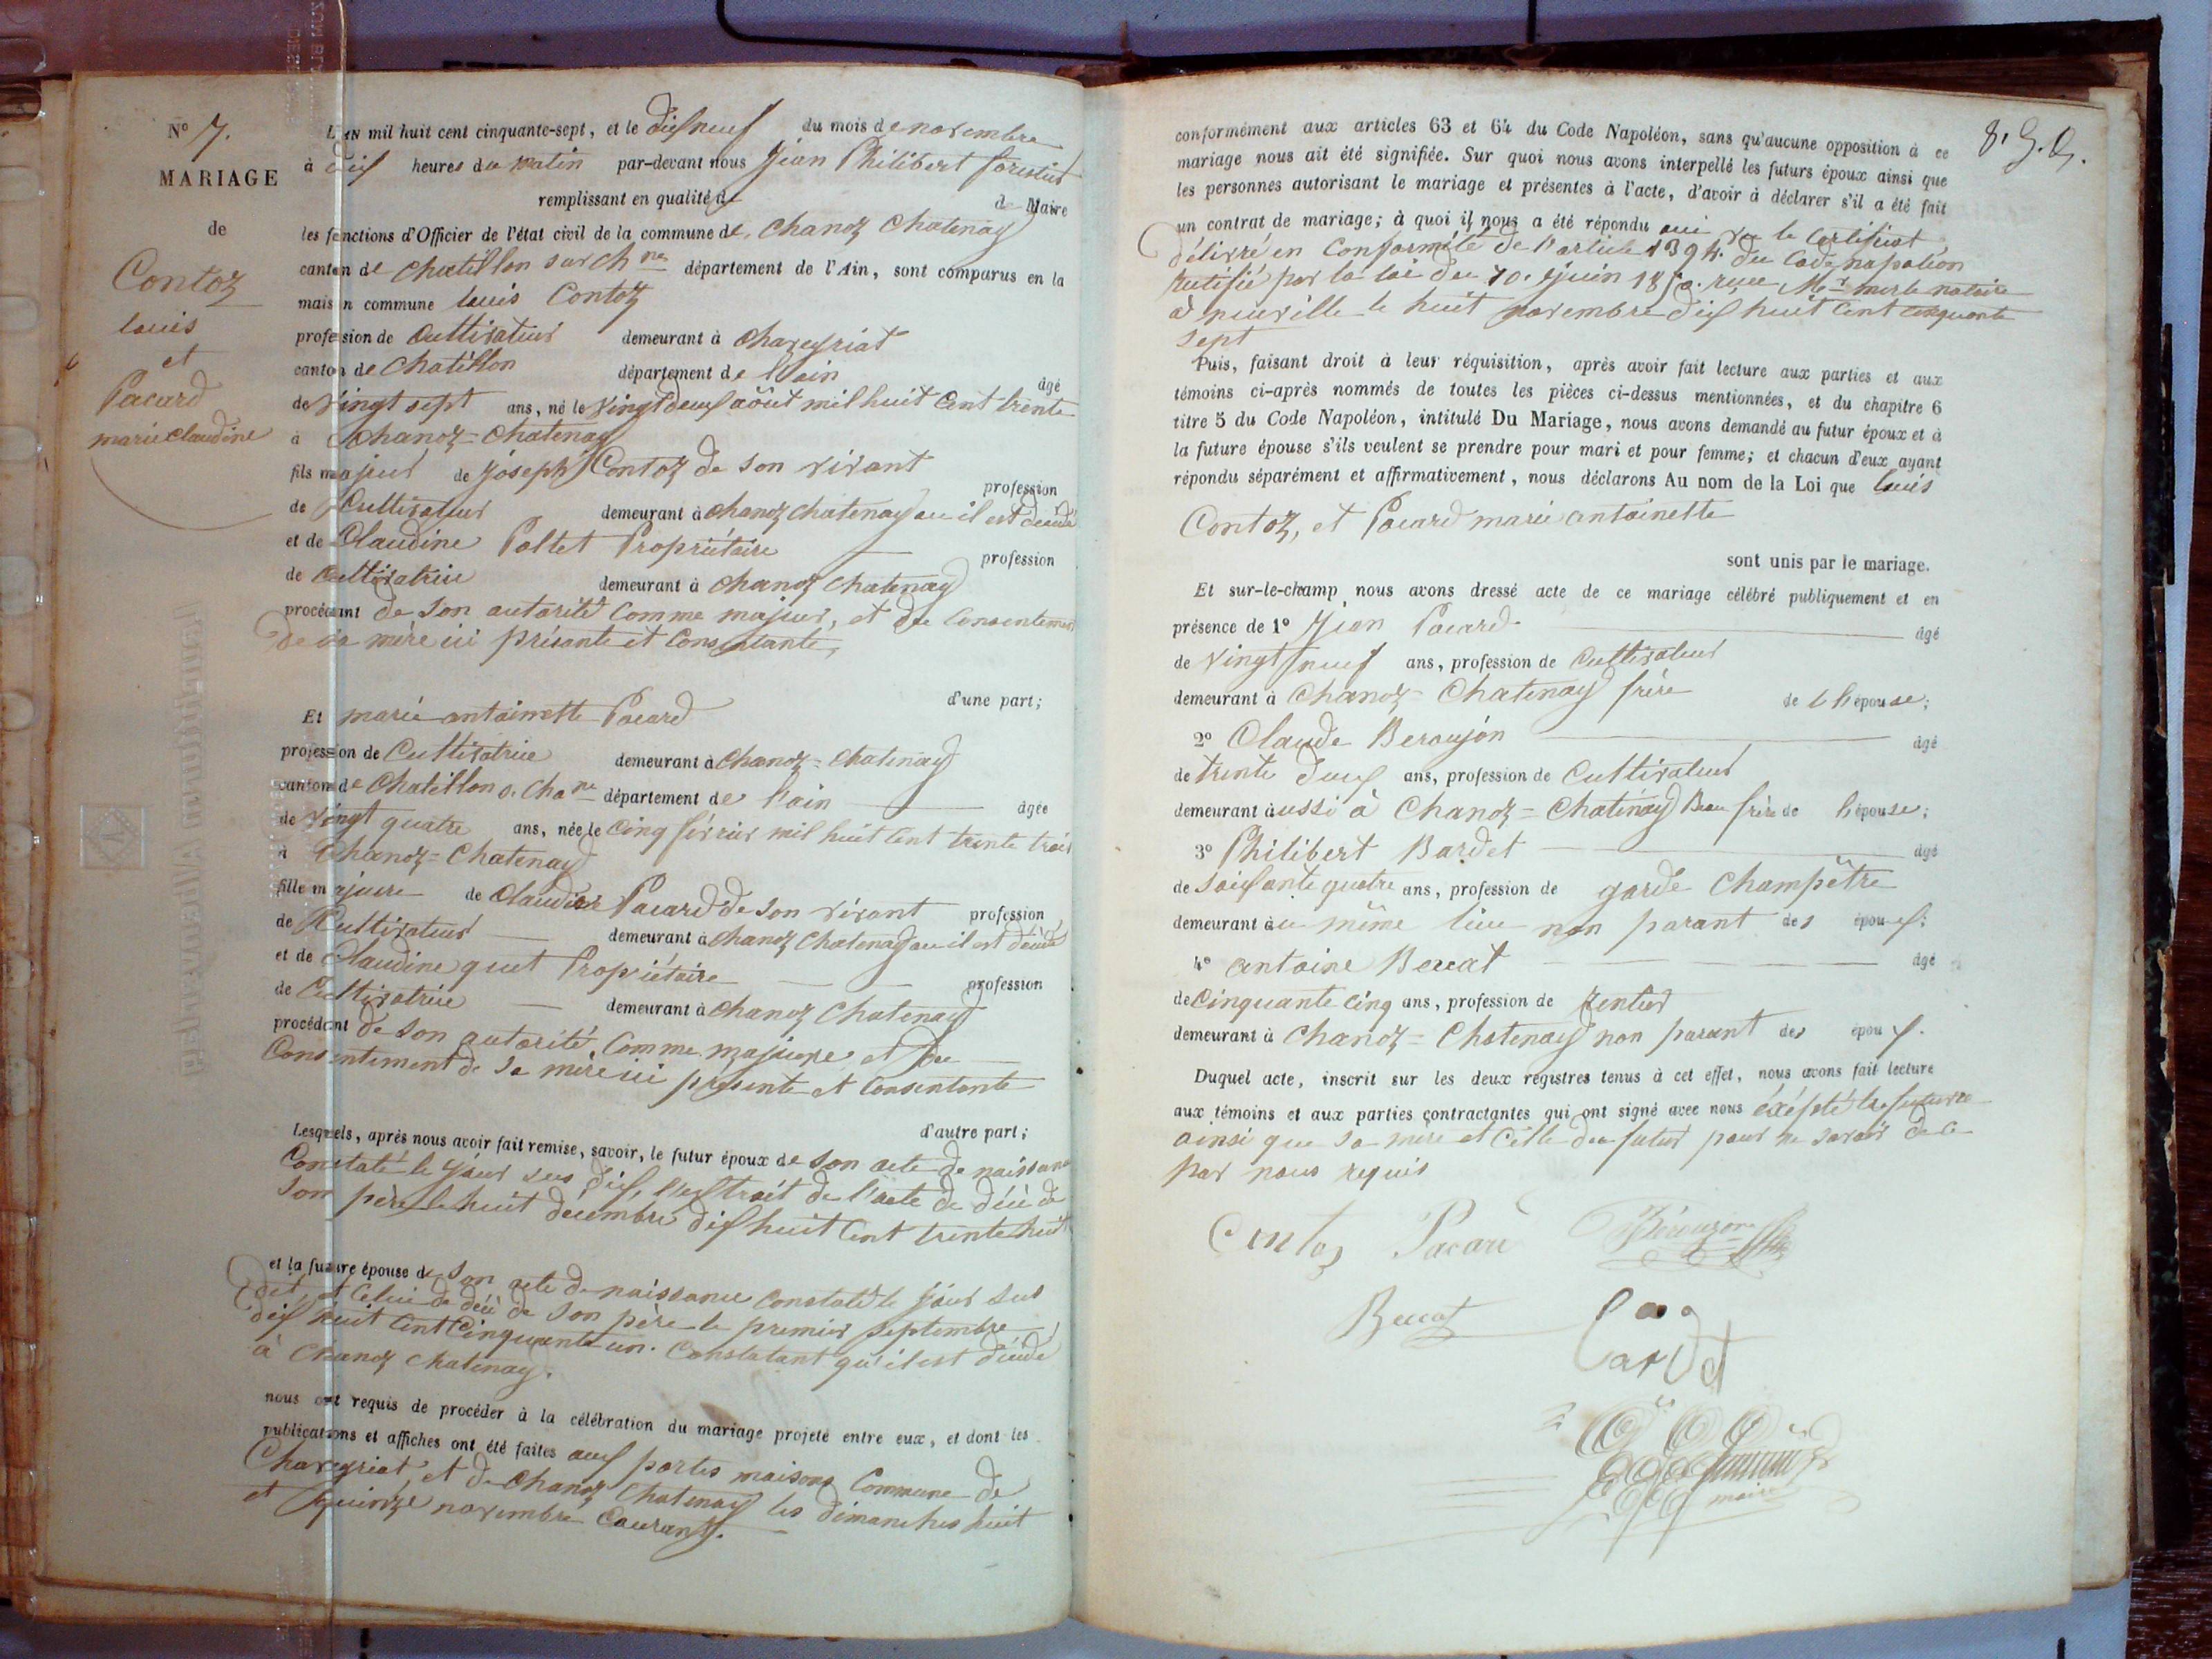 N° 7.
MARIAGE
de
Contoz
louis
et
Pacard
marie Claudine
L'AN mil huit cent cinquante-sept, et le dix neuf du mois de novembre
à dix heures du matin par-devant nous Jean Philibert forestier
remplissant en qualité de de Maire
les fonctions d'Officier de l'état civil de la commune de, Chanoz Chatenay
canton de Chatillon sur Chne département de l'Ain, sont comparus en la
maison commune louis Contoz
profession de Cultivateur demeurant à Chaveyriat
canton de Chatillon département de l'ain âgé
de vingt sept ans, né le vingt deux août mil huit Cent trente
à Chanoz=Chatenay
fils majeur de Joseph Contoz de son vivant profession
de Cultivateur demeurant à chanoz chatenay ou il est décédé
et de Claudine Poltet Propriétaire profession
de Cultivatrice demeurant à chanoz Chatenay
procédant de son autorité Comme majeur, et du Consentement
de sa mère ici présante et Consentante,
d'une part;
Et marie antoinette Pacard
profession de Cultivatrice demeurant à Chanoz=Chatenay
canton de Chatillon s. Chane département de l'ain âgée
de vingt quatre ans, née le Cinq février mil huit Cent trente trois
à Chanoz=Chatenay
fille majeure de Claudine Pacard de son vivant profession
de Cultivateur demeurant à chanoz Chatenay ou il est décédé
et de Claudine guet Propriétaire profession
de Cultivatrice demeurant à chanoz Chatenay
procédant de son autorité, Comme majeure et du
Consentement de sa mère ici présente et Consentante
d'autre part;
Lesquels, après nous avoir fait remise, savoir, le futur époux de son acte de naissance
Constaté le jour sus dit, l'extrait de l'acte de décè de
son père le huit décembre dix huit Cent trente huit
et la future épouse de son acte de naissance Constaté le jour sus
dit, et Celui de décè de son père le premier septembre
dix huit Cent Cinquante un. Constatant qu'il est décédé
à Chanoz Chatenay.
nous ont requis de procéder à la célébration du mariage projeté entre eux, et dont les
publications et affiches ont été faites aux portes maisons Commune de
Chaveyriat, et de Chanoz Chatenay les dimanches huit
et quinze novembre Courant.
8. J. G.
conformément aux articles 63 et 64 du Code Napoléon, sans qu'aucune opposition à ce
mariage nous ait été signifiée. Sur quoi nous avons interpellé les futurs époux ainsi que
les personnes autorisant le mariage et présentes à l'acte, d'avoir à déclarer s'il a été fait
un contrat de mariage; à quoi il nous a été répondu oui vu le Certificat
délivré en Conformité de l'article 1394. du Code napoléon
rectifié par la loi du 10. juin 1850. reçu Mr merle notaire
à neuville le huit novembre dix huit Cent cinquante
sept
Puis, faisant droit à leur réquisition, après avoir fait lecture aux parties et aux
témoins ci-après nommés de toutes les pièces ci-dessus mentionnées, et du chapitre 6
titre 5 du Code Napoléon, intitulé Du Mariage, nous avons demandé au futur époux et à
la future épouse s'ils veulent se prendre pour mari et pour femme; et chacun d'eux ayant
répondu séparément et affirmativement, nous déclarons Au nom de la Loi que louis
Contoz, et Pacard marie antoinette
sont unis par le mariage.
Et sur-le-champ nous avons dressé acte de ce mariage célébré publiquement et en
présence de 1° Jean Pacard âgé
de vingt neuf ans, profession de Cultivateur
demeurant à Chanoz=Chatenay frère de l'épouse;
2° Claude Beroujon âgé
de trente deux ans, profession de Cultivateur
demeurant aussi à Chanoz=Chatenay Beau frère de l'épouse;
3° Philibert Bardet âgé
de soixante quatre ans, profession de garde Champêtre
demeurant au même lieu non parant des époux;
4° antoine Beccat âgé
de Cinquante cinq ans, profession de rentier
demeurant à Chanoz=Chatenay non parant des époux.
Duquel acte, inscrit sur les deux registres tenus à cet effet, nous avons fait lecture
aux témoins et aux parties contractantes qui ont signé avec nous éxépté la future
ainsi que sa mère et Celle du futur pour ne savoir de ce
par nous requis
Contoz Pacard Béroujon
Beccat
Bardet
maire